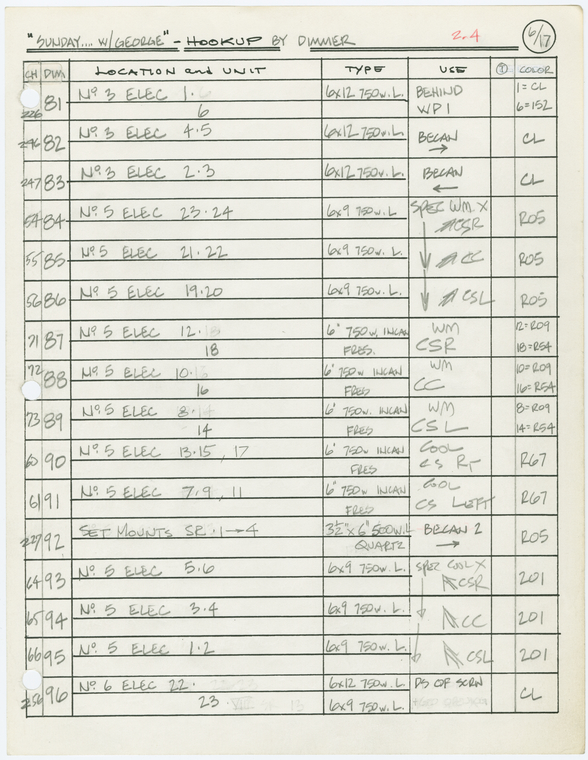 "SUNDAY.... W/GEORGE" - HOOKUP BY DIMMER 2.4 6/17
CH DIM LOCATION and UNIT TYPE USE COLOR
226 81 Nº 3 ELEC 1. 6x12 750w. L. BEHIND 1=CL
6 WP1 6=152
246 82 Nº 3 ELEC 4.5 6x12 750w. L. BEGAN → CL
247 83 Nº 3 ELEC 2.3 6x12 750w. L. BEGAN ← CL
54 84 Nº 5 ELEC 23.24 6x9 750w. L SPEC WM X
CSR R05
55 85 Nº 5 ELEC 21.22 6x9 750w. L. CC R05
56 86 Nº 5 ELEC 19.20 6x9 750w. L. CSL R05
71 87 Nº 5 ELEC 12. 6" 750w. INCAN WM 12=R09
18 FRES. CSR 18=R54
72 88 Nº 5 ELEC 10. 6" 750w INCAN WM 10=R09
16 FRES CC 16=R54
73 89 Nº 5 ELEC 8. 6" 750w. INCAN WM 8=R09
14 FRES CSL 14=R54
60 90 Nº 5 ELEC 13.15, 17 6" 750w INCAN COOL
FRES CS RT R67
61 91 Nº 5 ELEC 7.9, 11 6" 750w INCAN COOL
FRES CS LEFT R67
227 92 SET MOUNTS SR. 1→4 3½"x6" 500w.L BEGAN 2
QUARTZ → R05
64 93 Nº 5 ELEC 5.6 6x9 750w. L. SPEC COOL X
CSR 201
65 94 Nº 5 ELEC 3.4 6x9 750w. L. CC 201
66 95 Nº 5 ELEC 1.2 6x9 750w. L. CSL 201
256 96 Nº 6 ELEC 22. 6x12 750w. L. DS OF SCRN
23. 6x9 750w. L. CL